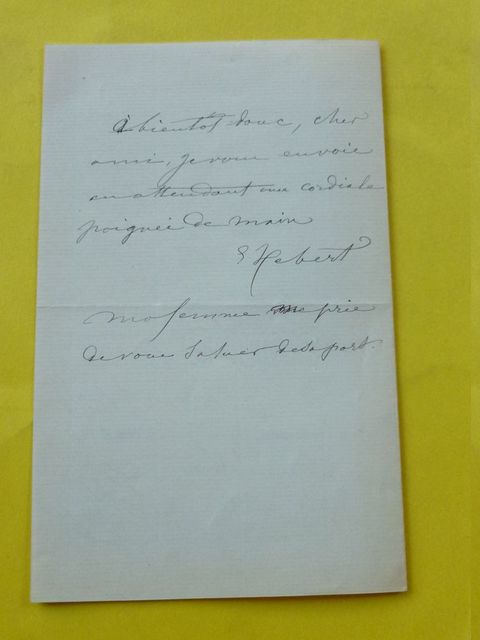 à bientôt donc, cher
ami, je vous envoie
en attendant une cordiale
poignée de main
E Hebert
ma femme me prie
de vous saluer de sa part.